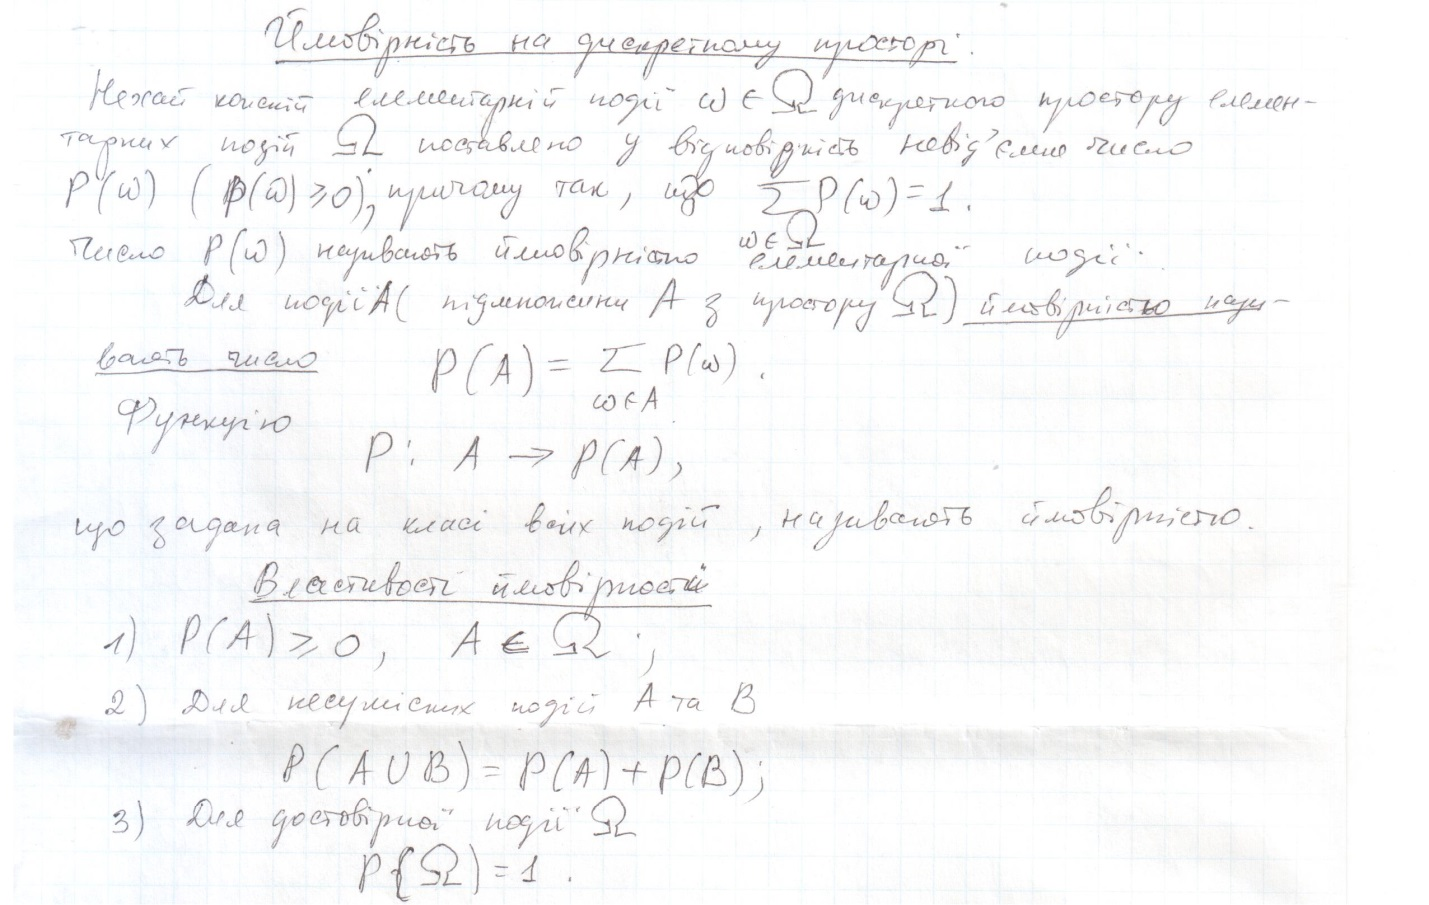 Ймовірність на дискретному просторі.
Нехай кожній елементарній події ω ∈ Ω дискретного простору елемен-
тарних подій Ω поставлено у відповідність невід'ємне число
P(ω) (P(ω) ≥ 0), причому так, що ∑ P(ω) = 1.
ω ∈ Ω
Число P(ω) називають ймовірністю елементарної події.
Для події A (підмножини A з простору Ω) ймовірністю нази-
вають число P(A) = ∑ P(ω).
ω ∈ A
Функцію
P: A → P(A),
що задана на класі всіх подій, називають ймовірністю.
Властивості ймовірності
1) P(A) ≥ 0, A ∈ Ω;
2) Для несумісних подій A та B
P(A ∪ B) = P(A) + P(B);
3) Для достовірної події Ω
P{Ω) = 1.